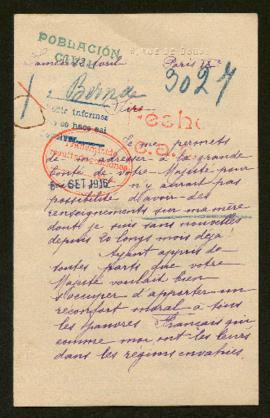 POBLACIÓN
CIVIL
Paris le
3027
Berna
pedir informes
Sire
Je me permets
de m'adresser à la grande
bonté de votre Majesté pour
n'y aurait pas
possibilité d'avoir des
renseignements sur ma mère
dont je suis sans nouvelles
depuis 20 longs mois déjà!
SET 1916
Ayant appris de
toutes parts que votre
Majesté voulait bien
s'occuper d'apporter un
réconfort moral à tous
les pauvres Français qui
comme moi ont les leurs
dans les régions envahies.